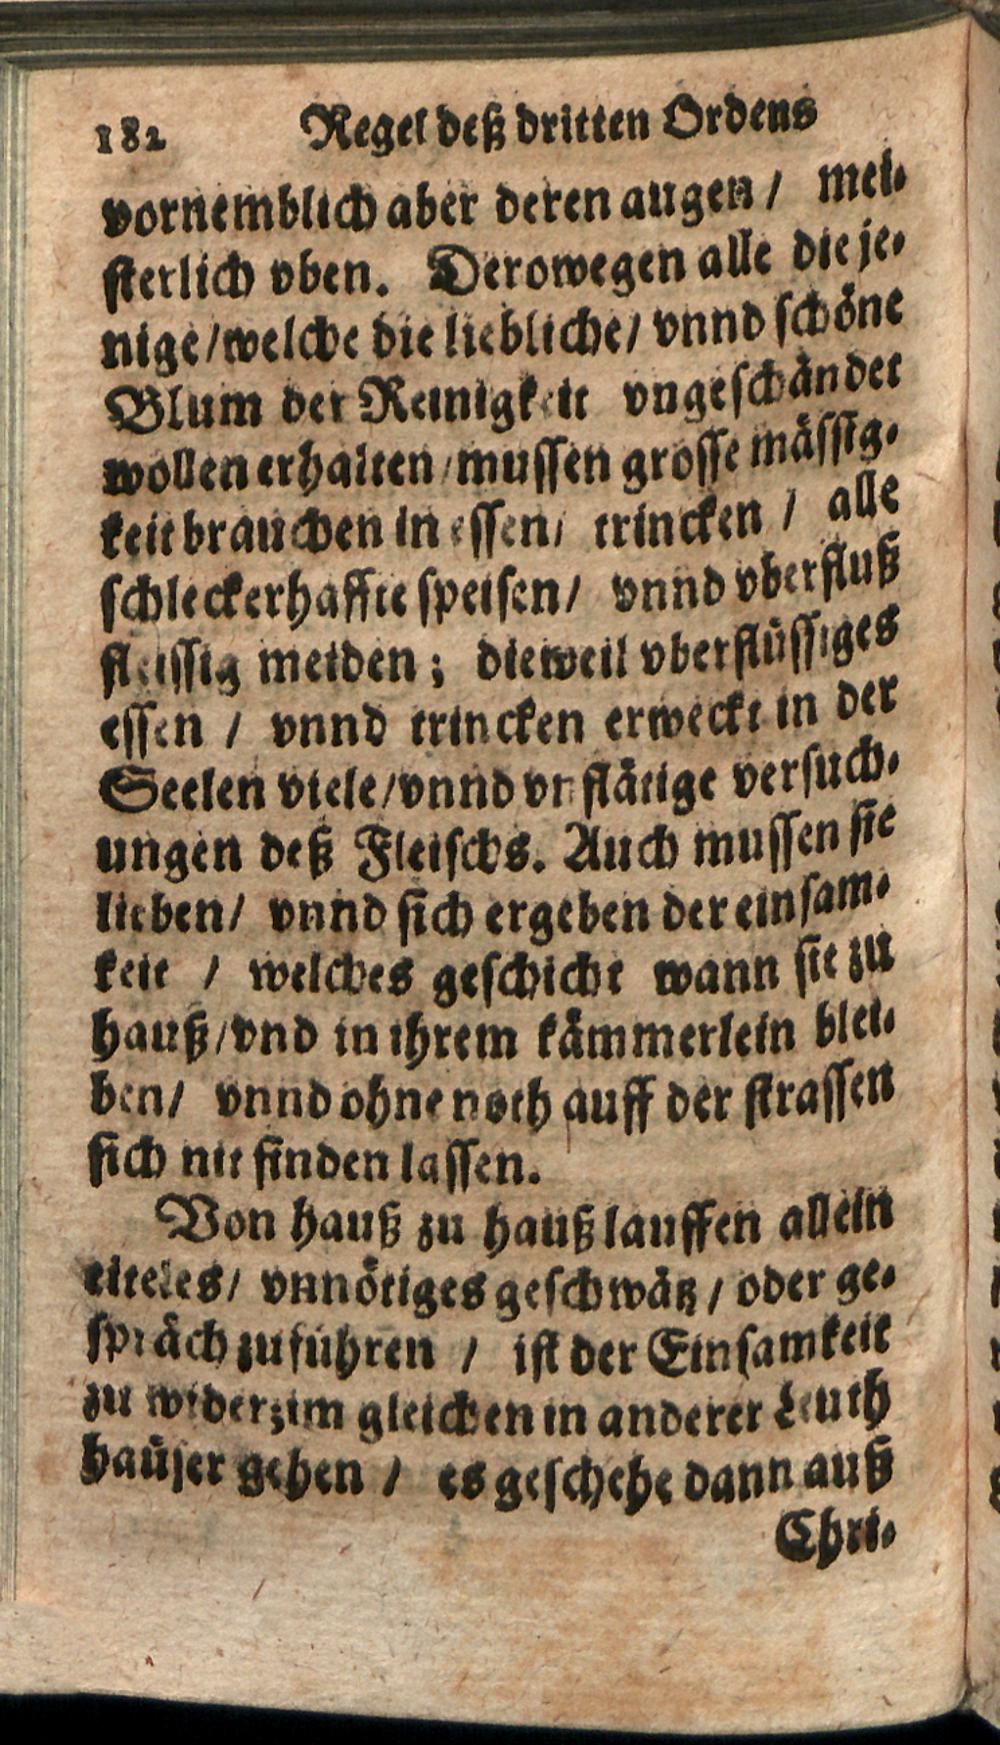 182 Regel deß dritten Ordens
vornemblich aber deren augen / mei-
sterlich vben. Derowegen alle die je-
nige / welche die liebliche / vnnd schöne
Blum der Reinigkeit vngeschändet
wollen erhalten / mussen grosse mässig-
keit brauchen in essen / trincken / alle
schleckerhaffte speisen / vnnd vberfluß
fleissig meiden; dieweil vberflüssiges
essen / vnnd trincken erweckt in der
Seelen viele / vnnd vnflätige versuch-
ungen deß Fleischs. Auch mussen sie
lieben / vnnd sich ergeben der einsam-
keit / welches geschicht wann sie zu
hauß / vnd in ihrem kämmerlein blei-
ben / vnnd ohne noth auff der strassen
sich nit finden lassen.
Von hauß zu hauß lauffen allein
eiteles / vnnötiges geschwätz / oder ge-
spräch zuführen / ist der Einsamkeit
zu wider; im gleichen in anderer Leuth
haüser gehen / es geschehe dann auß
Chri-